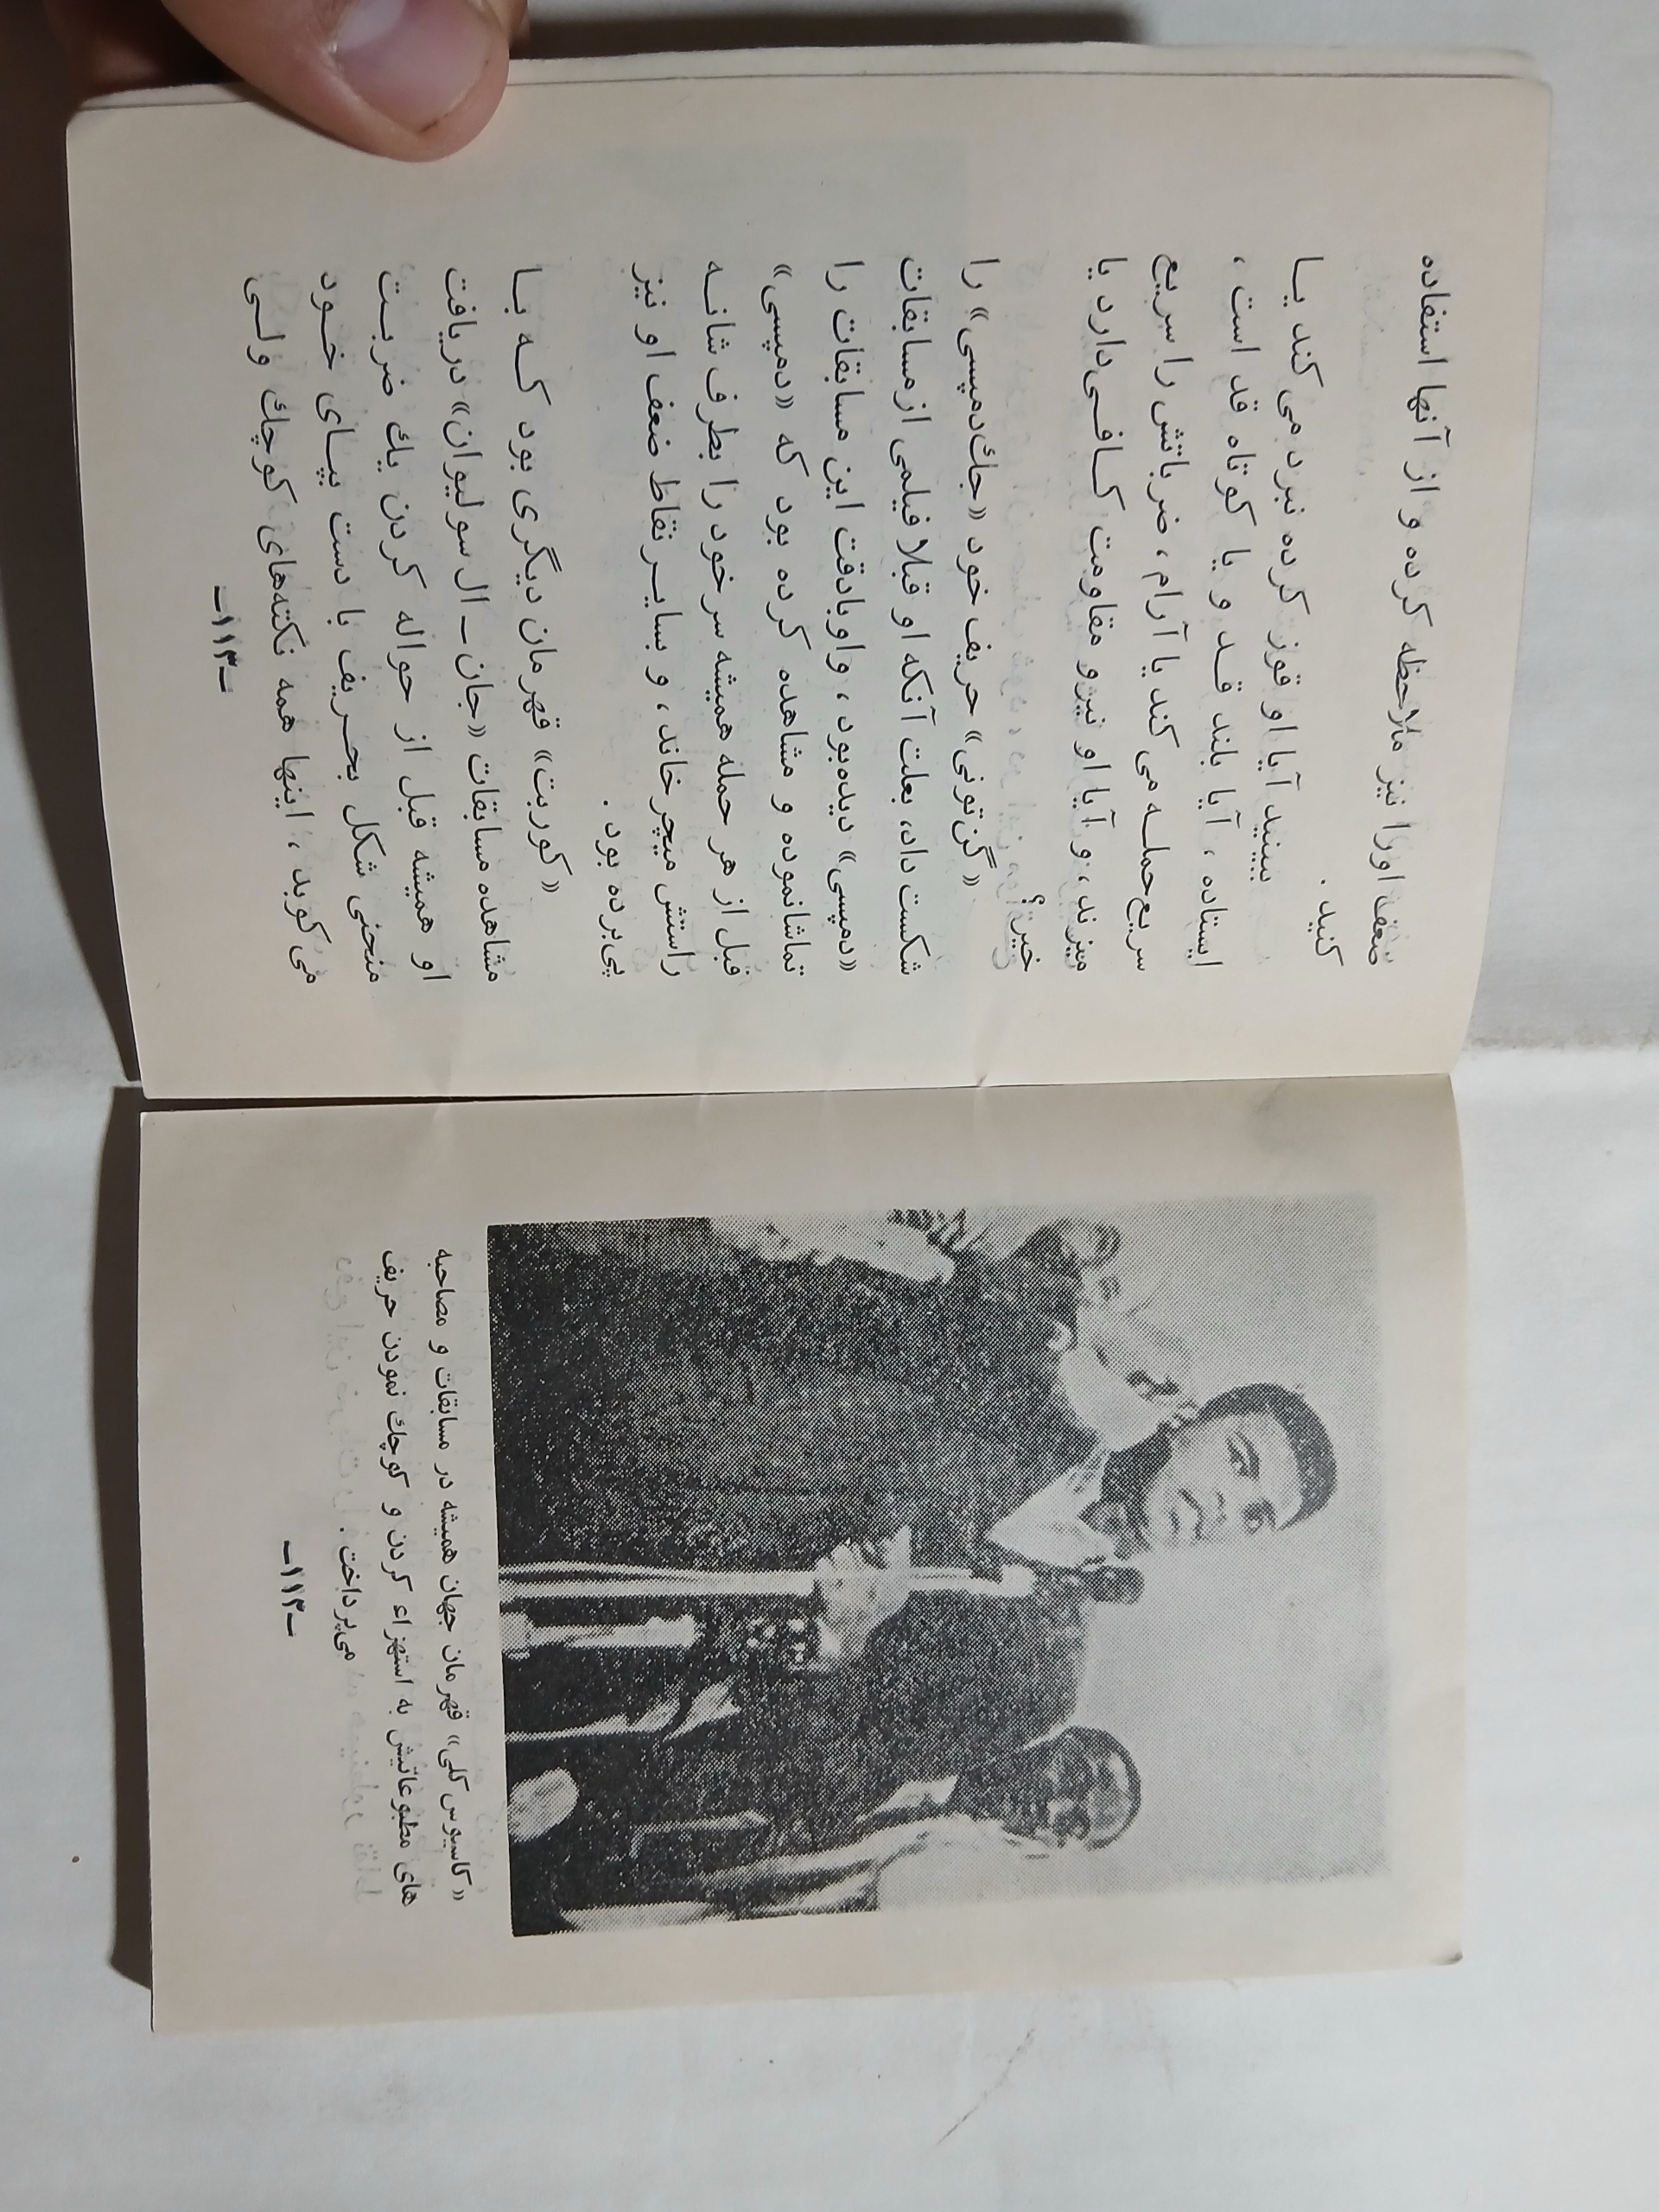 «کاسیوس کلی» قهرمان جهان همیشه در مسابقات و مصاحبه
های مطبوعاتیش به استهزاء کردن و کوچك نمودن حریف
می‌پرداخت.
-۱۱۲-
ضعف اورا نیز ملاحظه کرده و از آنها استفاده
کنید .
ببینید آیا او قوز کرده نبرد می‌کند یا
ایستاده ، آیا بلند قد و یا کوتاه قد است ،
سریع حمله می‌کند یا آرام ، ضرباتش را سریع
میزند ، و آیا او نیرو مقاومت کافی دارد یا
خیر؟
«گن‌تونی» حریف خود «جك‌دمپسی» را
شکست داد، بعلت آنکه او قبلا فیلمی از مسابقات
«دمپسی» دیده بود ، و او بادقت این مسابقات را
تماشا نموده و مشاهده کرده بود که «دمپسی»
قبل از هر حمله همیشه سر خود را بطرف شانه
راستش میچرخاند ، و بسایر نقاط ضعف او نیز
پی‌برده بود .
«کوربت» قهرمان دیگری بود که با
مشاهده مسابقات «جان ـ ال سولیوان» دریافت
او همیشه قبل از حواله کردن یك ضربت
منحنی شکل بحریف با دست بپای خود
می‌کوبد ، اینها همه نکته‌های کوچك ولی
-۱۱۳-